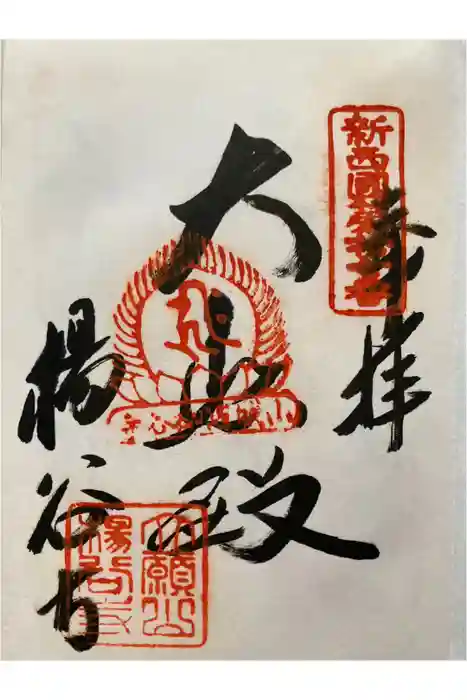 奉拝
新西國第拾七番
大悲殿
楊谷寺
立願山
楊谷寺